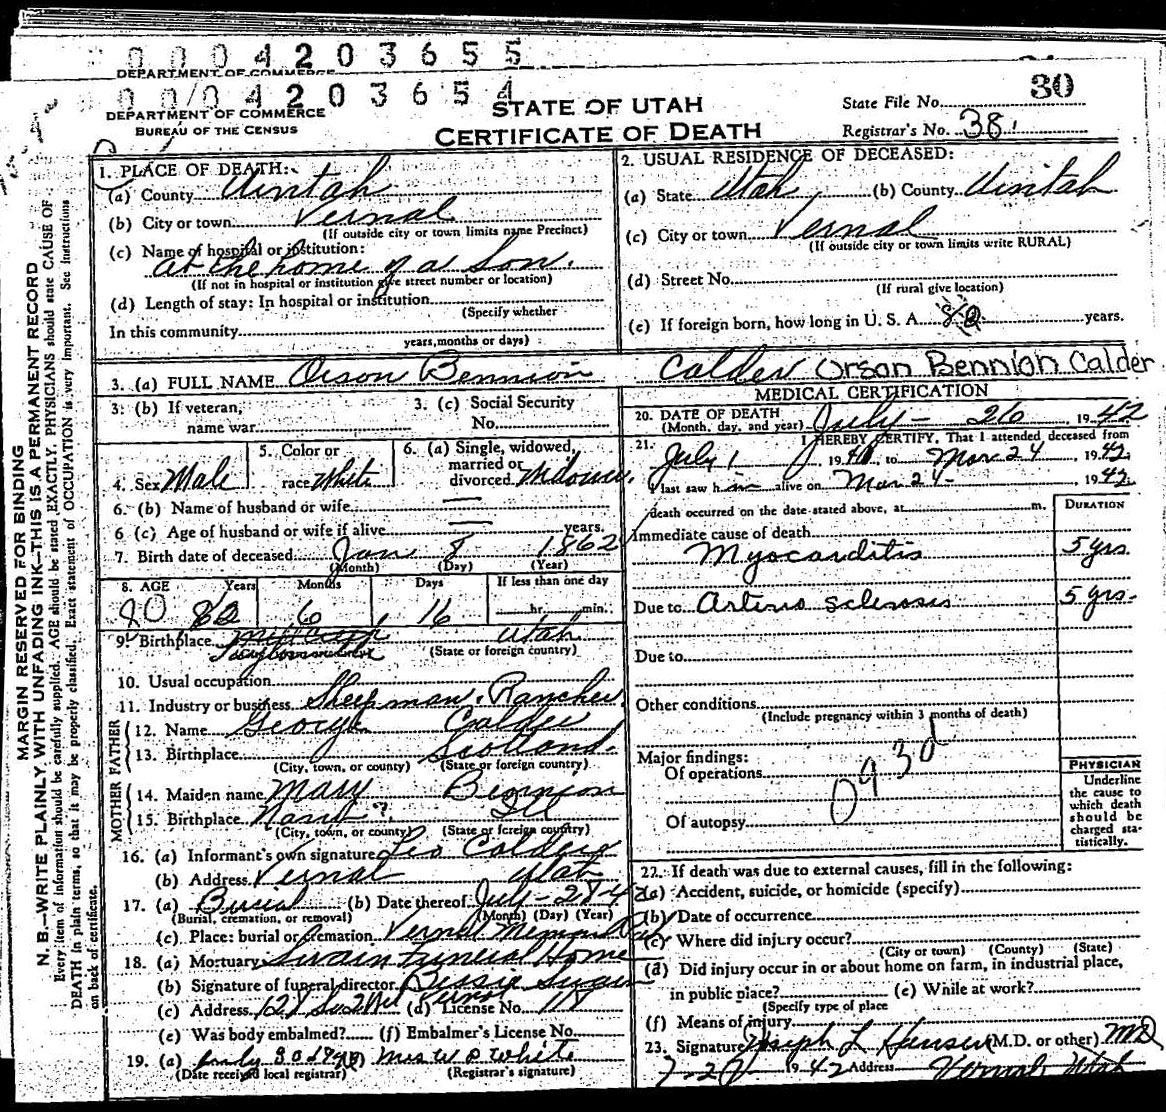 0004203655
DEPARTMENT OF COMMERCE
00/04203654
DEPARTMENT OF COMMERCE
BUREAU OF THE CENSUS
STATE OF UTAH
CERTIFICATE OF DEATH
State File No. 30
Registrar's No. 38
MARGIN RESERVED FOR BINDING
N. B.—WRITE PLAINLY, WITH UNFADING INK—THIS IS A PERMANENT RECORD
Every item of information should be carefully supplied. AGE should be stated EXACTLY. PHYSICIANS should state CAUSE OF
DEATH in plain terms, so that it may be properly classified. Exact statement of OCCUPATION is very important. See Instructions
on back of certificate.
1. PLACE OF DEATH:
(a) County Uintah
(b) City or town Vernal
(If outside city or town limits name Precinct)
(c) Name of hospital or institution:
at the home of a Son.
(If not in hospital or institution give street number or location)
(d) Length of stay: In hospital or institution
(Specify whether
In this community
years, months or days)
2. USUAL RESIDENCE OF DECEASED:
(a) State Utah (b) County Uintah
(c) City or town Vernal
(If outside city or town limits write RURAL)
(d) Street No.
(If rural give location)
(e) If foreign born, how long in U. S. A. years.
3. (a) FULL NAME Orson Bennion Calder Orson Bennion Calder
3. (b) If veteran, name war
3. (c) Social Security No.
4. Sex Male
5. Color or race White
6. (a) Single, widowed, married or divorced Widower
6. (b) Name of husband or wife
6 (c) Age of husband or wife if alive years.
7. Birth date of deceased Jan 8 1862
(Month) (Day) (Year)
8. AGE Years Months Days If less than one day
80 82 6 16 hr. min.
9. Birthplace Utah
(State or foreign country)
10. Usual occupation
11. Industry or business Sheepman. Rancher
FATHER
12. Name George Calder
13. Birthplace Scotland.
(City, town, or county) (State or foreign country)
MOTHER
14. Maiden name Mary Bennion
15. Birthplace ? Ill
(City, town, or county) (State or foreign country)
16. (a) Informant's own signature Leo Calder
(b) Address Vernal Utah
17. (a) Burial (b) Date thereof July-28-42
(Burial, cremation, or removal) (Month) (Day) (Year)
(c) Place: burial or cremation Vernal Memorial
18. (a) Mortuary Swain Funeral Home
(b) Signature of funeral director Bessie Swain
(c) Address Vernal (d) License No. 118
(e) Was body embalmed? (f) Embalmer's License No.
19. (a) Mrs W D White
(Date received local registrar) (Registrar's signature)
MEDICAL CERTIFICATION
20. DATE OF DEATH July - 26 1942
(Month, day, and year)
21. I HEREBY CERTIFY, That I attended deceased from
July 1 1941, to Mar 24 1942.
I last saw him alive on Mar 24 1942
death occurred on the date stated above, at m.
DURATION
Immediate cause of death
Myocarditis 5 yrs.
Due to Arterio sclerosis 5 yrs.
Due to
Other conditions
(Include pregnancy within 3 months of death)
Major findings:
Of operations
093d
Of autopsy
PHYSICIAN
Underline
the cause to
which death
should be
charged sta-
tistically.
22. If death was due to external causes, fill in the following:
(a) Accident, suicide, or homicide (specify)
(b) Date of occurrence
(c) Where did injury occur?
(City or town) (County) (State)
(d) Did injury occur in or about home on farm, in industrial place,
in public place? (e) While at work?
(Specify type of place
(f) Means of injury
23. Signature Joseph L Hansen (M.D. or other) MD
1942 Address Vernal Utah